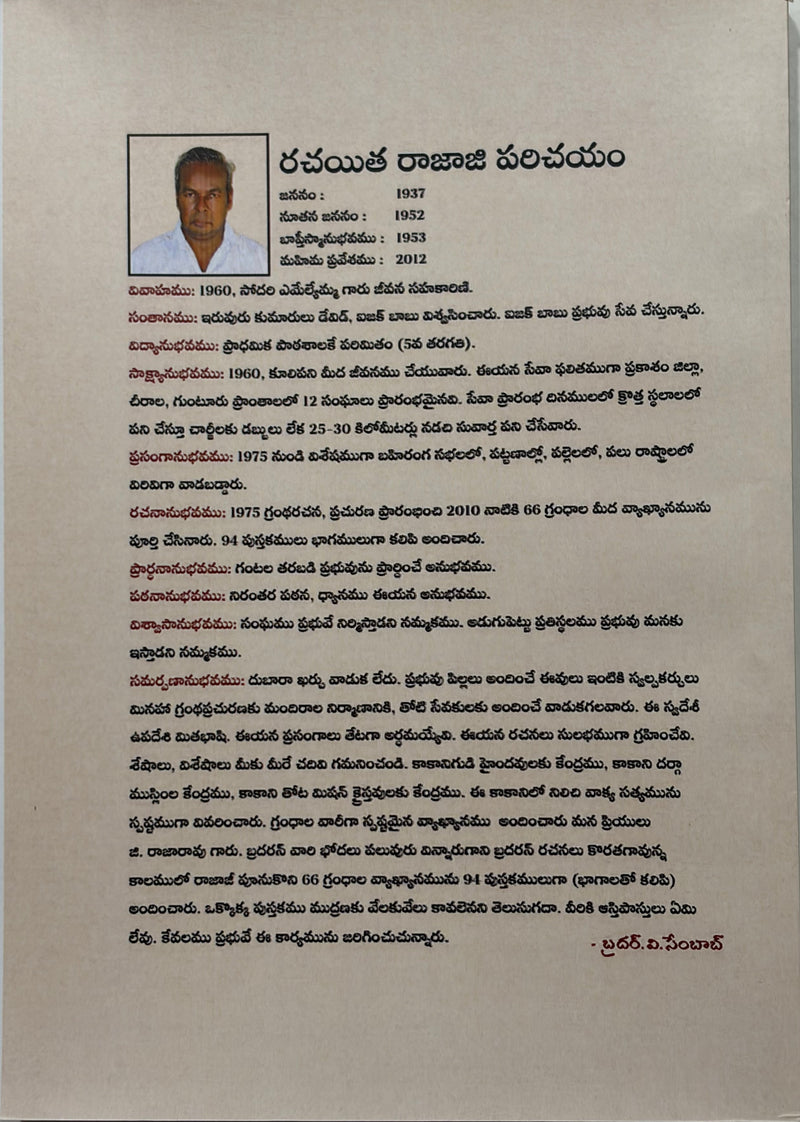 రచయిత రాజాజి పరిచయం
జననం : 1937
నూతన జననం : 1952
బాప్తీస్మానుభవము : 1953
మహిమ ప్రవేశము : 2012
వివాహము: 1960, సోదరి ఎమేల్యేమ్మ గారు జీవన సహకారిణి.
సంతానము: ఇరువురు కుమారులు డేవిడ్, ఐజక్ బాబు విశ్వసించారు. ఐజక్ బాబు ప్రభువు సేవ చేస్తున్నారు.
విద్యానుభవము: ప్రాధమిక పాఠశాలకే పరిమితం (5వ తరగతి).
సాక్ష్యానుభవము: 1960, కూలిపని మీద జీవనము చేయువారు. ఈయన సేవా ఫలితముగా ప్రకాశం జిల్లా,
చీరాల, గుంటూరు ప్రాంతాలలో 12 సంఘాలు ప్రారంభమైనవి. సేవా ప్రారంభ దినములలో క్రొత్త స్థలాలలో
పని చేస్తూ చార్జీలకు డబ్బులు లేక 25-30 కిలోమీటర్లు నడచి సువార్త పని చేసేవారు.
ప్రసంగానుభవము: 1975 నుండి విశేషముగా బహిరంగ సభలలో, పట్టణాల్లో, పల్లెలలో, పలు రాష్ట్రాలలో
విరివిగా వాడబడ్డారు.
రచనానుభవము: 1975 గ్రంథరచన, ప్రచురణ ప్రారంభించి 2010 నాటికి 66 గ్రంధాల మీద వ్యాఖ్యానమును
పూర్తి చేసినారు. 94 పుస్తకములు భాగములుగా కలిపి అందించారు.
ప్రార్థనానుభవము: గంటల తరబడి ప్రభువును ప్రార్ధించే అనుభవము.
పఠనానుభవము: నిరంతర పఠన, ధ్యానము ఈయన అనుభవము.
విశ్వాసానుభవము: సంఘము ప్రభువే నిర్మిస్తాడని నమ్మకము. అడుగుపెట్టు ప్రతిస్థలము ప్రభువు మనకు
ఇస్తాడని నమ్మకము.
సమర్పణానుభవము: దుబారా ఖర్చు వాడుక లేదు. ప్రభువు పిల్లలు అందించే ఈవులు ఇంటికి స్వల్పకర్చులు
మినహా గ్రంథప్రచురణకు మందిరాల నిర్మాణానికి, తోటి సేవకులకు అందించే వాడుకగలవారు. ఈ స్వదేశీ
ఉపదేశి మితభాషి. ఈయన ప్రసంగాలు తేటగా అర్ధమయ్యేవి. ఈయన రచనలు సులభముగా గ్రహించేవి.
శేషాలు, విశేషాలు మీకు మీరే చదివి గమనించండి. కాకానిగుడి హైందవులకు కేంద్రము, కాకాని దర్గా
ముస్లింల కేంద్రము, కాకాని తోట మిషన్ క్రైస్తవులకు కేంద్రము. ఈ కాకానిలో నిలిచి వాక్య సత్యమును
స్పష్టముగా వివరించారు. గ్రంధాల వారీగా స్పష్టమైన వ్యాఖ్యానము అందించారు మన ప్రియులు
జి. రాజారావు గారు. బ్రదరన్ వారి భోదలు పలువురు విన్నారుగాని బ్రదరన్ రచనలు కొరతగావున్న
కాలములో రాజాజీ పూనుకొని 66 గ్రంధాల వ్యాఖ్యానమును 94 పుస్తకములుగా (భాగాలతో కలిపి)
అందించారు. ఒక్కొక్క పుస్తకము ముద్రణకు వేలకువేలు కావలెనని తెలుసుగదా. వీరికి ఆస్తిపాస్తులు ఏమి
లేవు. కేవలము ప్రభువే ఈ కార్యమును జరిగించుచున్నారు.
- బ్రదర్. వి.సేంబాబ్